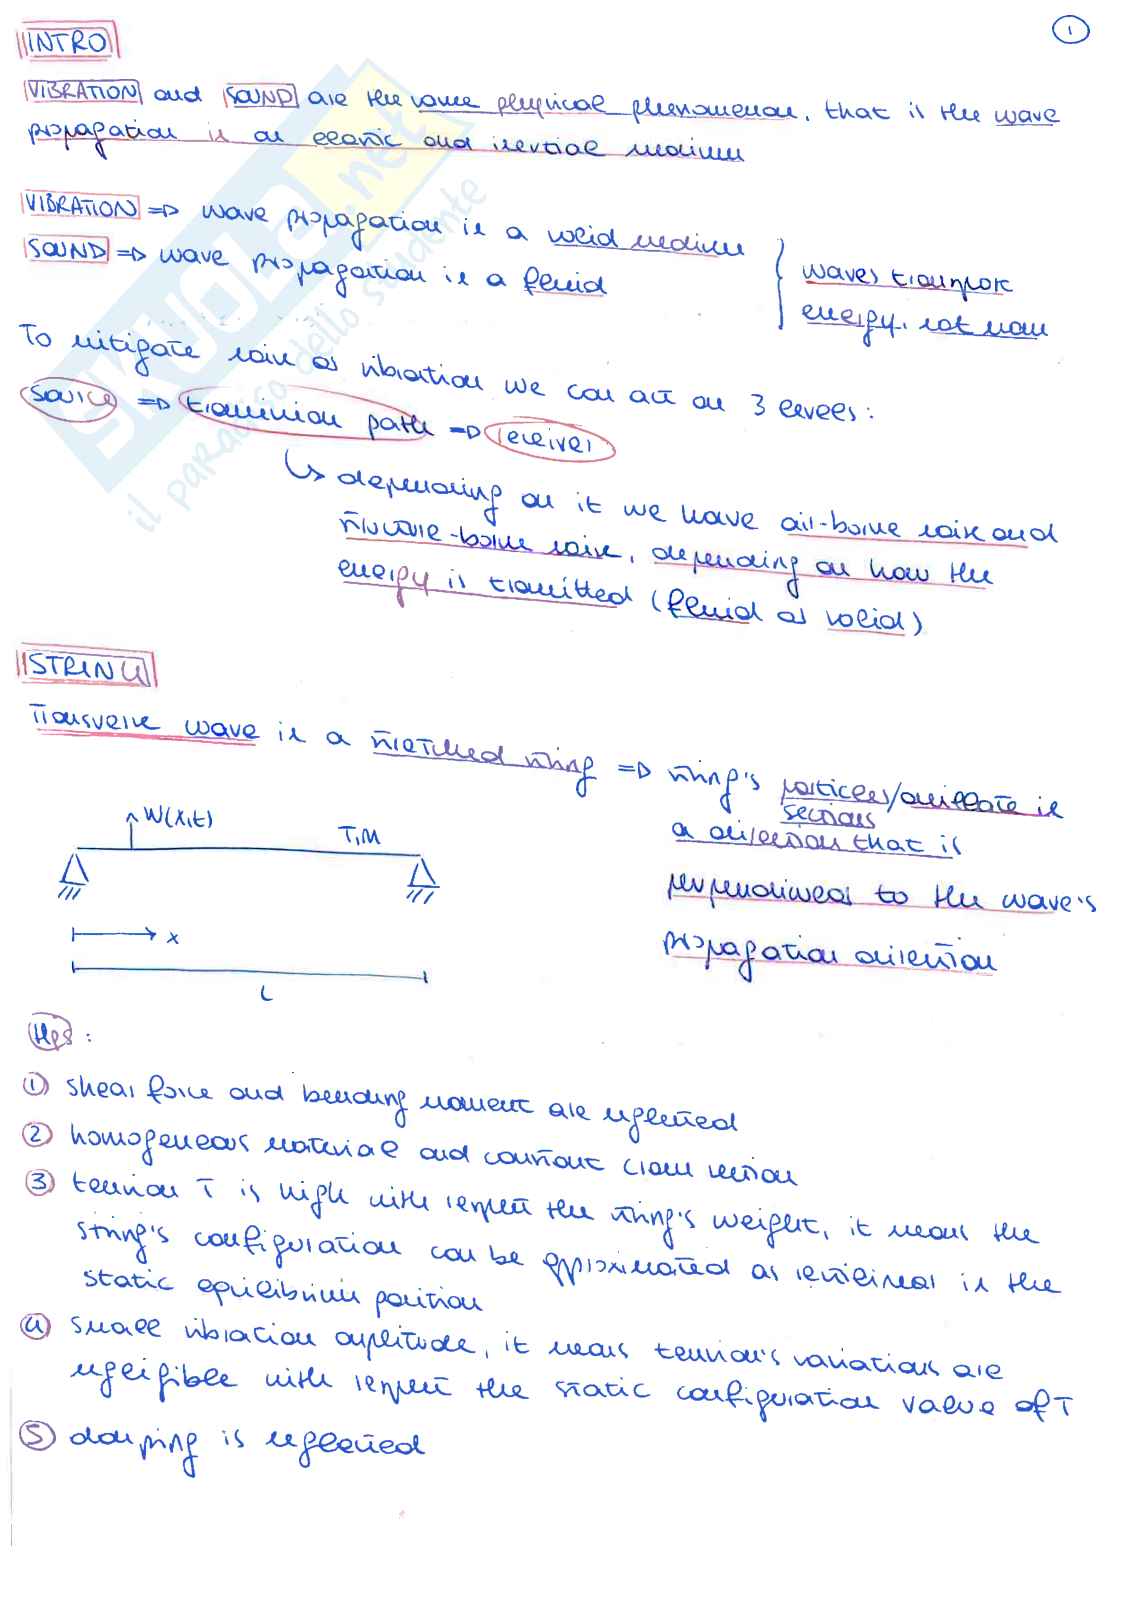 1
INTRO
VIBRATION and SOUND are the same physical phenomenon, that is the wave
propagation in an elastic and inertial medium
VIBRATION => wave propagation in a solid medium
SOUND => wave propagation in a fluid
waves transport
energy, not mass
To mitigate noise or vibration we can act on 3 levels:
source => transmission path => receiver
↳ depending on it we have air-borne noise and
structure-borne noise, depending on how the
energy is transmitted (fluid or solid)
STRING
Transverse wave in a stretched string => string's particles/oscillate in
sections
a direction that is
perpendicular to the wave's
propagation direction
W(x,t)
T, M
x
L
Hps:
① shear force and bending moment are neglected
② homogeneous material and constant cross section
③ tension T is high with respect the string's weight, it means the
string's configuration can be approximated as rectilinear in the
static equilibrium position
④ small vibration amplitude, it means tension's variations are
negligible with respect the static configuration value of T
⑤ damping is neglected
SKUOLA.net
il paradiso dello studente